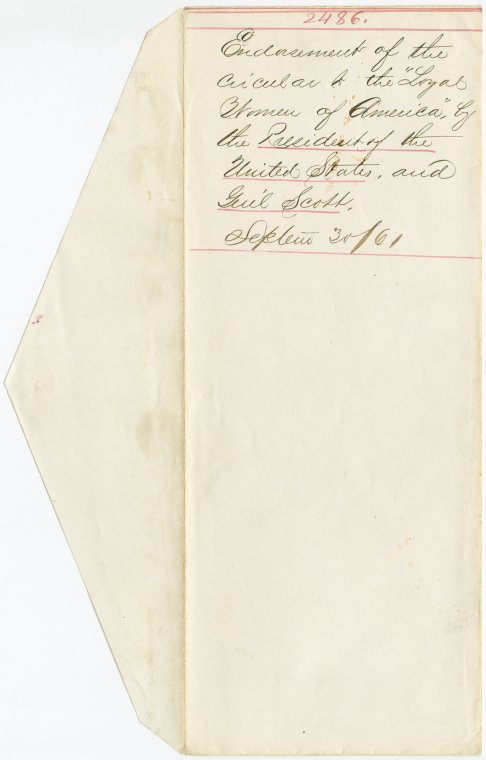 2486.
Endorsement of the
circular to the "Loyal
Women of America", by
the President of the
United States, and
Gen'l Scott.
Septem 30/61